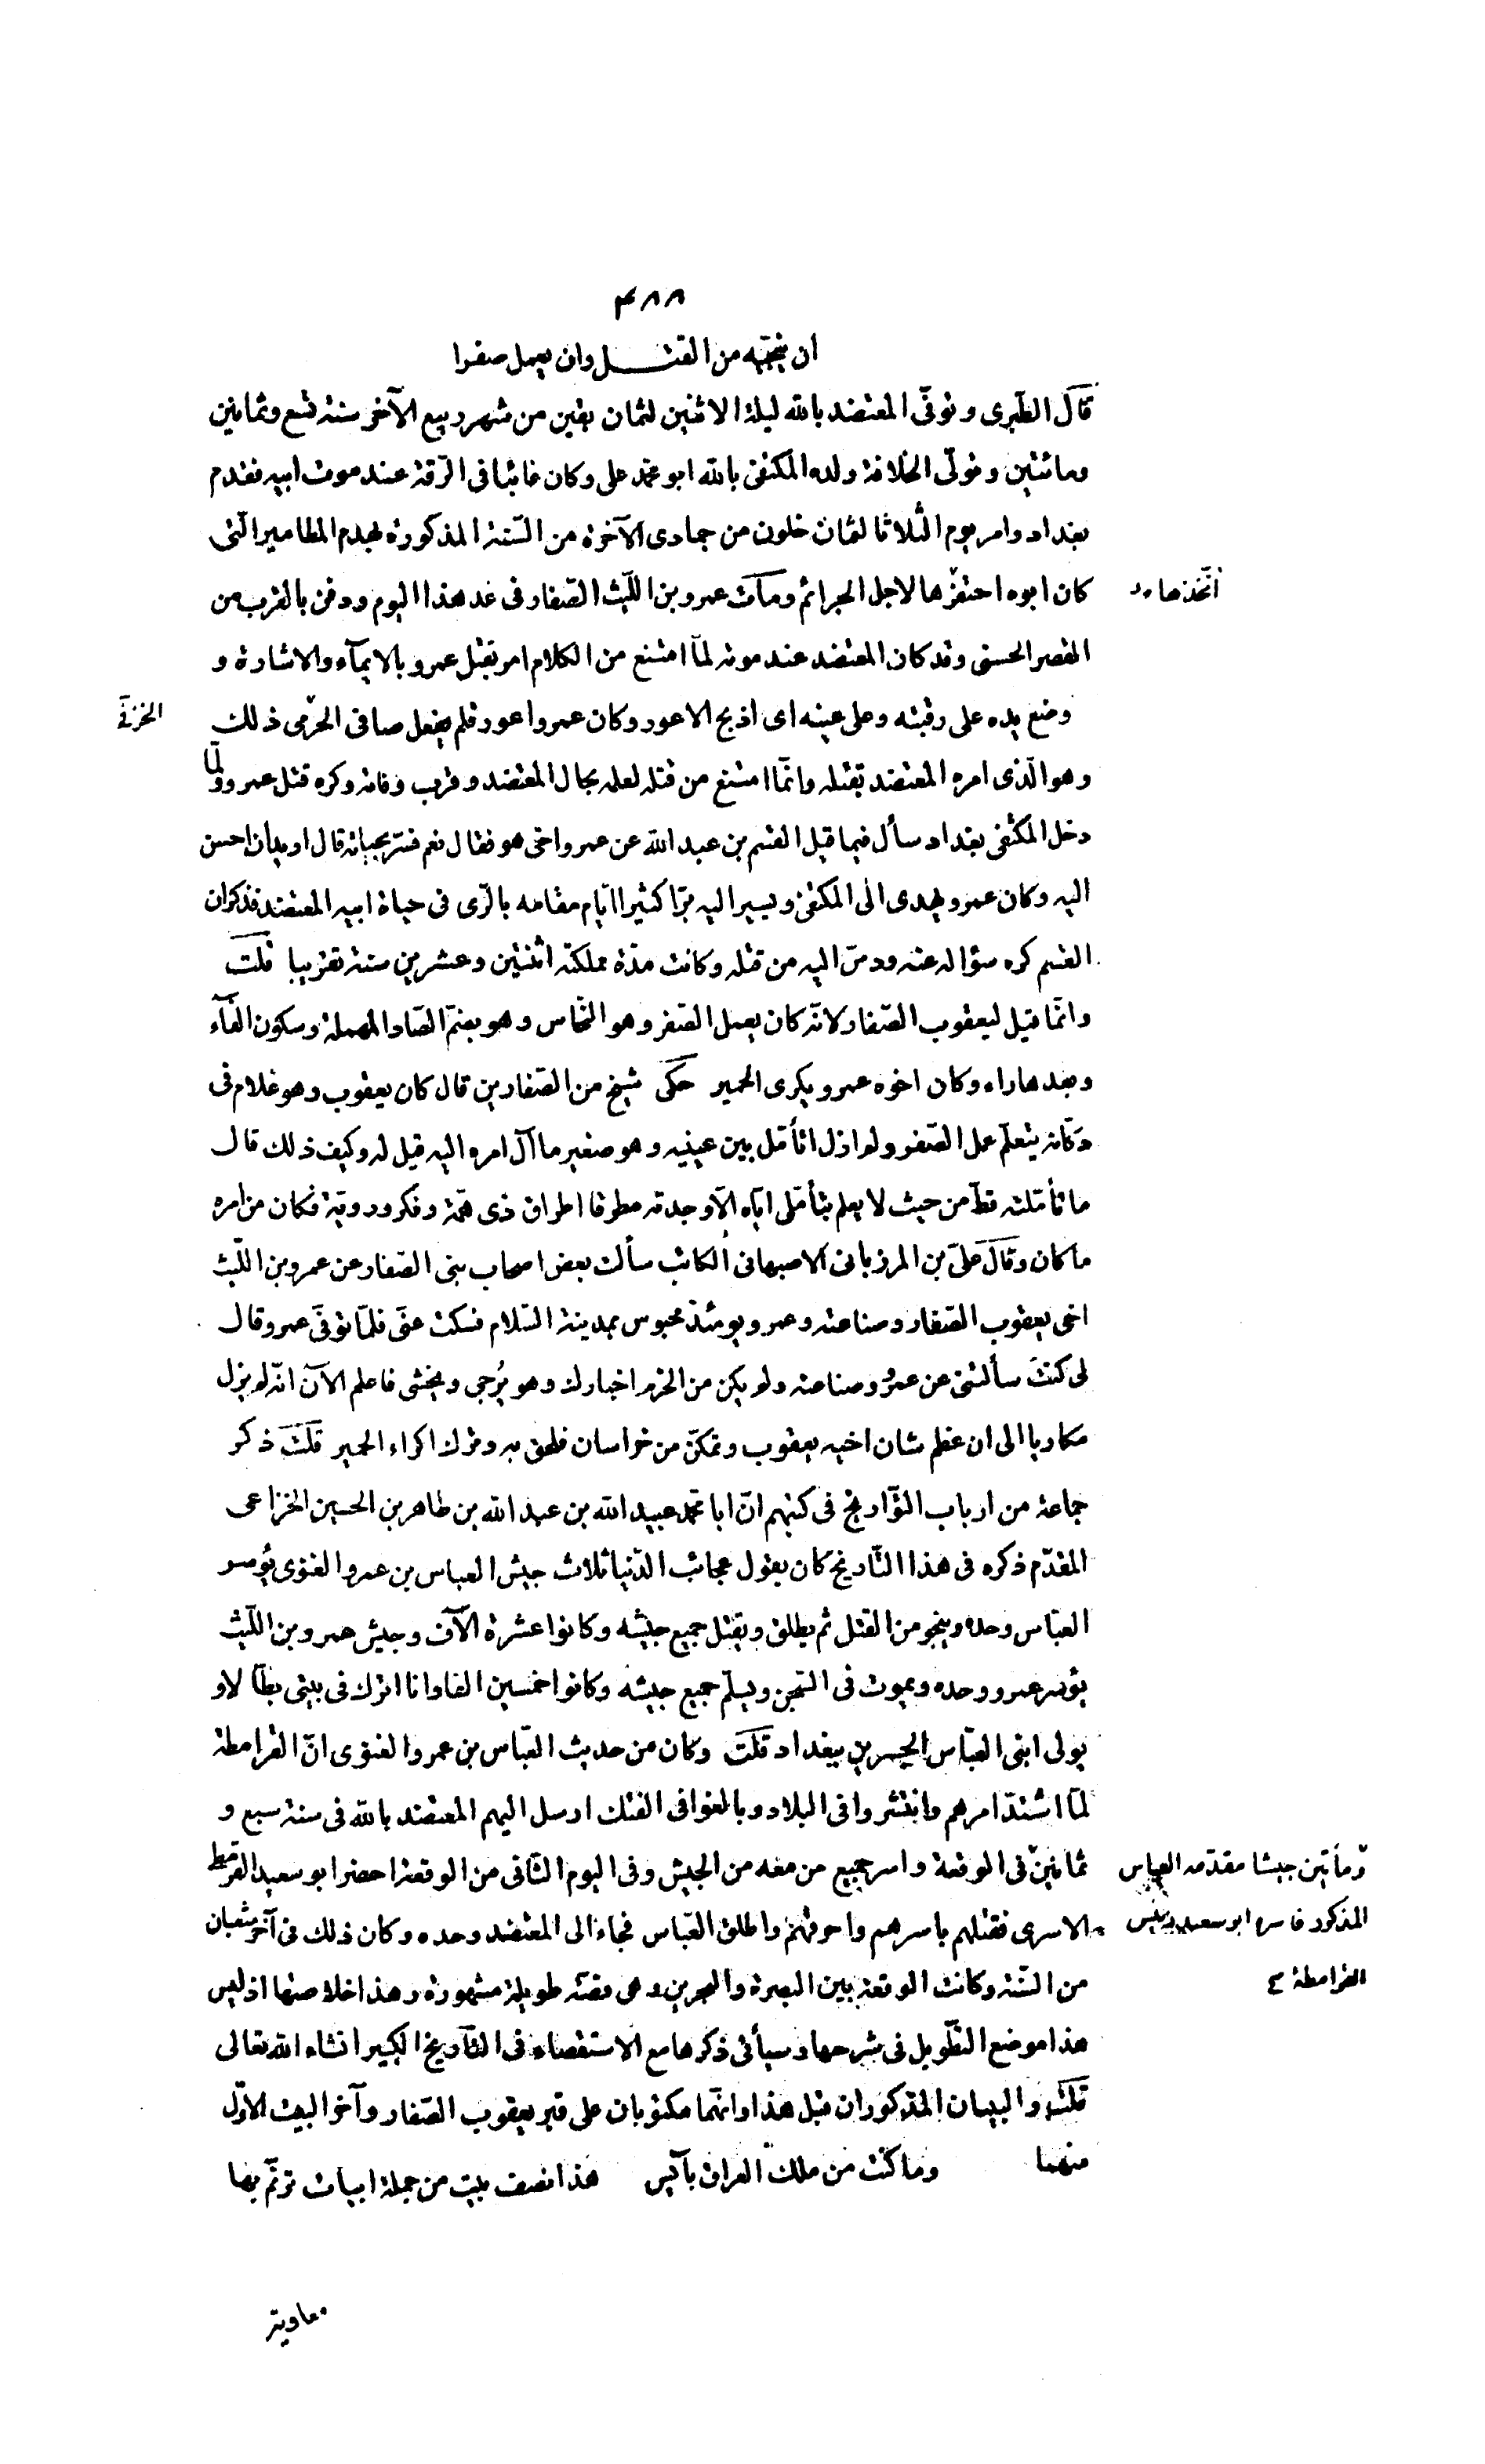 ٤٨٨
ان ينجيه من القتل وان يعمل صفرا
قال الطبرى وتوفّى المعتضد بالله ليلة الاثنين لثمان بقين من شهر ربيع الآخر سنة تسع وثمانين
ومائتين وتولّى الخلافة ولده المكتفى بالله ابو محمّد على وكان غائبا فى الرّقة عند موت ابيه فقدم
بغداد وامر يوم الثلاثا لثمان خلون من جمادى الآخرة من السّنة المذكورة بهدم المطامير الّتى
كان ابوه احتفرها لاجل الجرائم ومات عمرو بن اللّيث الصّفار فى غد هذا اليوم ودفن بالقرب من
اتّخذها
القصر الحسنى وقد كان المعتضد عند موته لمّا امتنع من الكلام امر بقتل عمرو بالايمآء والاشارة و
وضع يده على رقبته وعلى عينه اى اذبح الاعور وكان عمرو اعور فلم يفعل صافى الحرّمى ذلك
الخزنة
وهو الّذى امره المعتضد بقتله وانّما امتنع من قتله لعلمه بحال المعتضد وقرب وفاته وكره قتل عمرو ولمّا
دخل المكتفى بغداد سأل فيما قيل القسم بن عبد الله عن عمرو احى هو فقال نعم فسرّ بحياته قال اريد ان احسن
اليه وكان عمرو يهدى الى المكتفى ويسير اليه برّا كثيرا ايّام مقامه بالرّى فى حياة ابيه المعتضد فذكر ان
القسم كره سؤاله عنه ودسّ اليه من قتله وكانت مدّة مملكته اثنتين وعشرين سنة تقريبا قلت
وانّما قيل ليعقوب الصّفار لانّه كان يعمل الصّفر وهو النّحاس وهو بضمّ الصّاد المهملة وسكون الفآء
وبعدها راء وكان اخوه عمرو يكرى الحمير حكى شيخ من الصّفارين قال كان يعقوب وهو غلام فى
دكّانه يتعلّم عمل الصّفر ولم ازل اتأمّل بين عينيه وهو صغير ما آل امره اليه قيل له وكيف ذلك قال
ما تأمّلته قطّ من حيث لا يعلم بتأمّلى ايّاه الّا وجدته مطرقا اطراق ذى همّة وفكر ورويّة فكان من امره
ما كان وقال علىّ بن المرزبانى الاصبهانى الكاتب سألت بعض اصحاب بنى الصّفار عن عمرو بن اللّيث
اخى يعقوب الصّفار وصناعته وعمرو يومئذ محبوس بمدينة السّلام فسكت عنّى فلمّا توفّى عمرو قال
لى كنت سألتنى عن عمرو وصناعته ولم يكن من الحزم اخبارك وهو يُرجى ويخشى فاعلم الآن انّه لم يزل
مكاريا الى ان عظم شان اخيه يعقوب وتمكّن من خراسان فلحق به وترك اكراء الحمير قلت ذكر
جماعة من ارباب التّواريخ فى كتبهم انّ ابا محمّد عبيد الله بن عبد الله بن طاهر بن الحسين الخزاعى
المقدّم ذكره فى هذا التّاريخ كان يقول عجائب الدّنيا ثلاث جيش العباس بن عمرو الغنوى يؤسر
العبّاس وحده وينجو من القتل ثم يطلق ويقتل جميع جيشه وكانوا عشرة الآف وجيش عمرو بن اللّيث
يؤسر عمرو وحده ويموت فى السّجن ويسلّم جميع جيشه وكانوا خمسين الفا وانا اترك فى بيتى بطّالا و
يولى ابنى العبّاس الجسرين ببغداد قلت وكان من حديث العبّاس بن عمرو الغنوى انّ القرامطة
لمّا اشتدّ امرهم وانتشروا فى البلاد وبالغوا فى الفتك ارسل اليهم المعتضد بالله فى سنة سبع و
ثمانين فى الوقعة واسر جميع من معه من الجيش وفى اليوم الثّانى من الوقعة احضر ابو سعيد القرمطى
ومأتين جيشا مقدّمه العباس
الاسرى فقتلهم باسرهم واحرقهم واطلق العبّاس فجاء الى المعتضد وحده وكان ذلك فى آخر شعبان
المذكور فاسره ابو سعيد رئيس
من السّنة وكانت الوقعة بين البصرة والبحرين وهى قصّة طويلة مشهورة وهذا خلاصتها اذ ليس
القرامطة
هذا موضع التّطويل فى شرحها وسيأتى ذكرها مع الاستقصاء فى التّاريخ الكبير انشاء الله تعالى
قلت والبيتان المذكوران قبل هذا وانّهما مكتوبان على قبر يعقوب الصّفار وآخر البيت الاوّل
منهما وما كنت من ملك العراق بآيس هذا نصف بيت من جملة ابيات ترنّم بها
معاوية